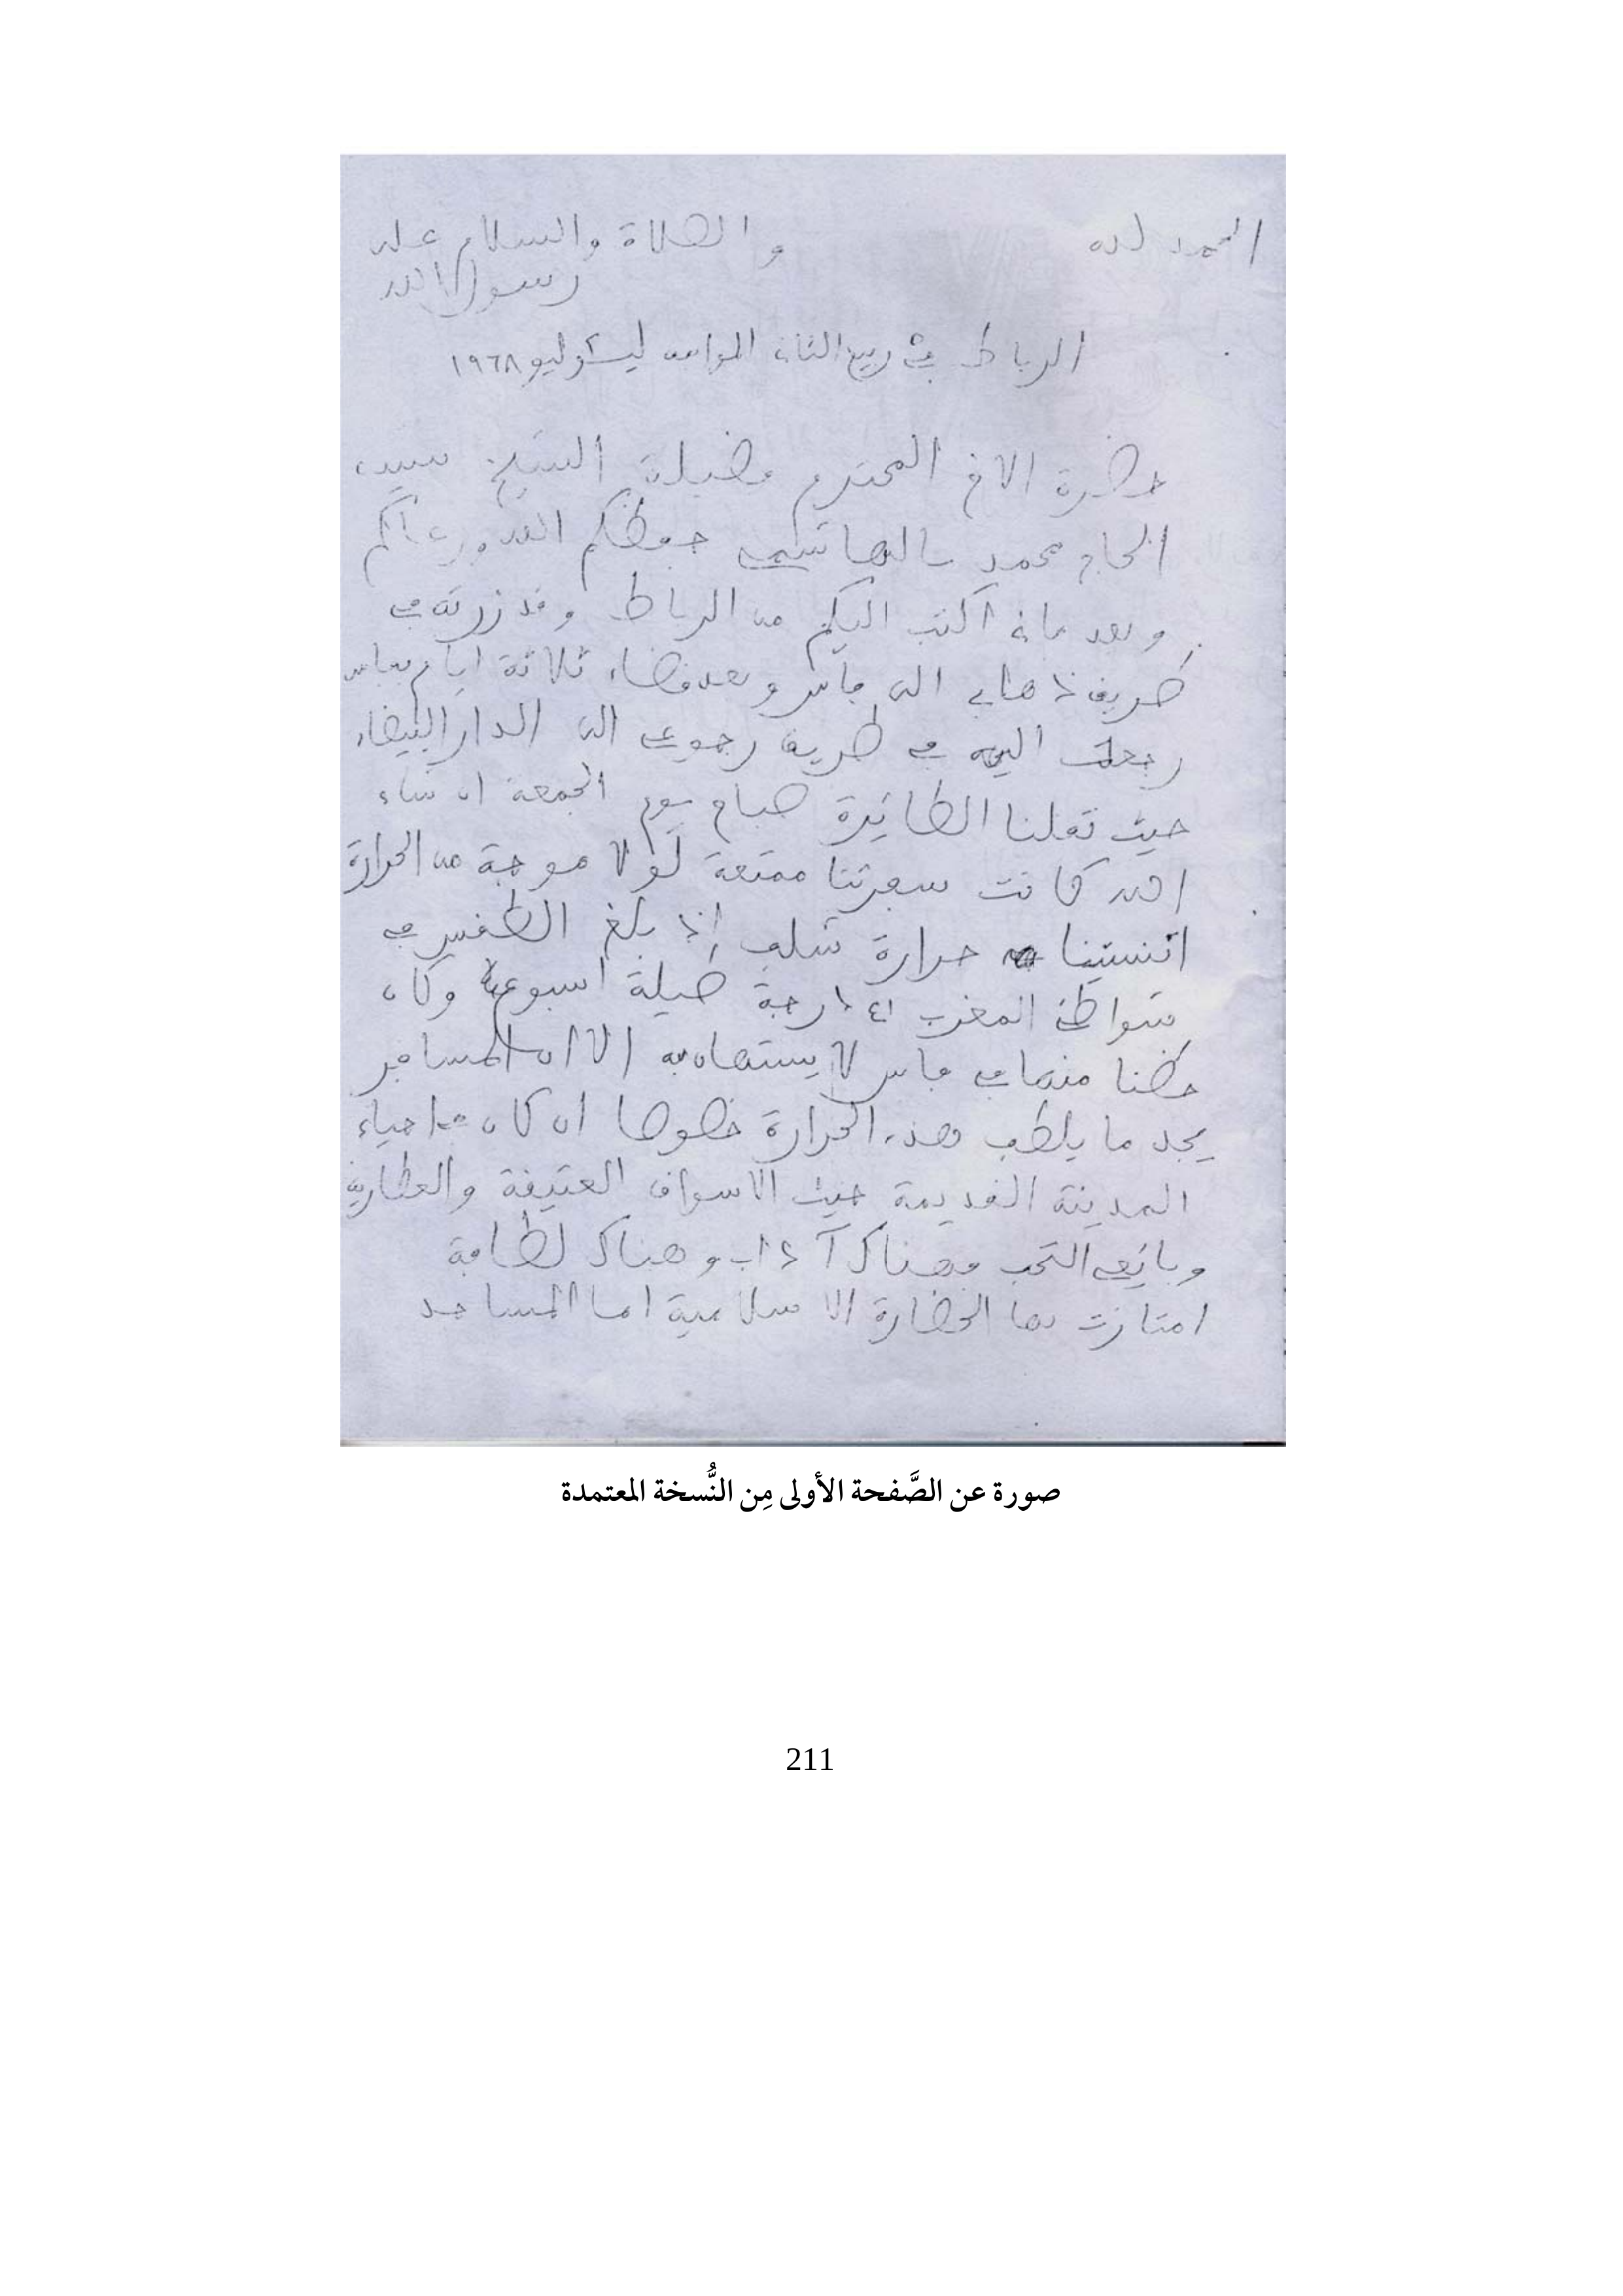 الحمد لله والصلاة والسلام على
رسول الله
الرباط في ربيع الثاني الموافق يوليو ١٩٦٨
حضرة الاخ المحترم فضيلة الشيخ سيدي
الحاج محمد بالهاشمي حفظكم الله ورعاكم
وبعد فاني اكتب اليكم من الرباط وقد زرته في
طريق ذهابي الى فاس وبعد قضاء ثلاثة ايام بفاس
رجعت اليه في طريق رجوعي الى الدار البيضاء
حيث تقلنا الطائرة صباح يوم الجمعة ان شاء
الله كانت سفرتنا ممتعة لولا موجة من الحرارة
انستينا حرارة شلف إذ بلغ الطقس في
شواطئ المغرب ٤١ درجة طيلة اسبوع وكان
حظنا منها في فاس لا يستهان به الا ان المسافر
يجد ما يلطف هذه الحرارة خصوصا ان كان احياء
المدينة القديمة حيث الاسواق العتيقة والعطارين
وبائعي التحف فهناك آداب وهناك لطافة
امتازت بها الحضارة الاسلامية اما المساجد
صورة عن الصَّفحة الأولى مِن النُّسخة المعتمدة
211